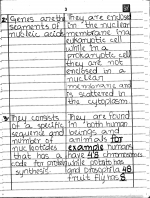 2) Genes are the They are enclosed
segments of in the nuclear
nucleic acids membrane in a
eukaryotic cell
while in a
prokaryotic cell
they are not
enclosed in a
nuclear
membrane and
is scattered in
the cytoplasm
3) They consists They are found
of a specific in both human
sequence and beings and
number of animals for
nucleotides example humans
that has a have 46 chromosomes
code for protein while potato has
synthesis and drosophila
fruit fly has 8